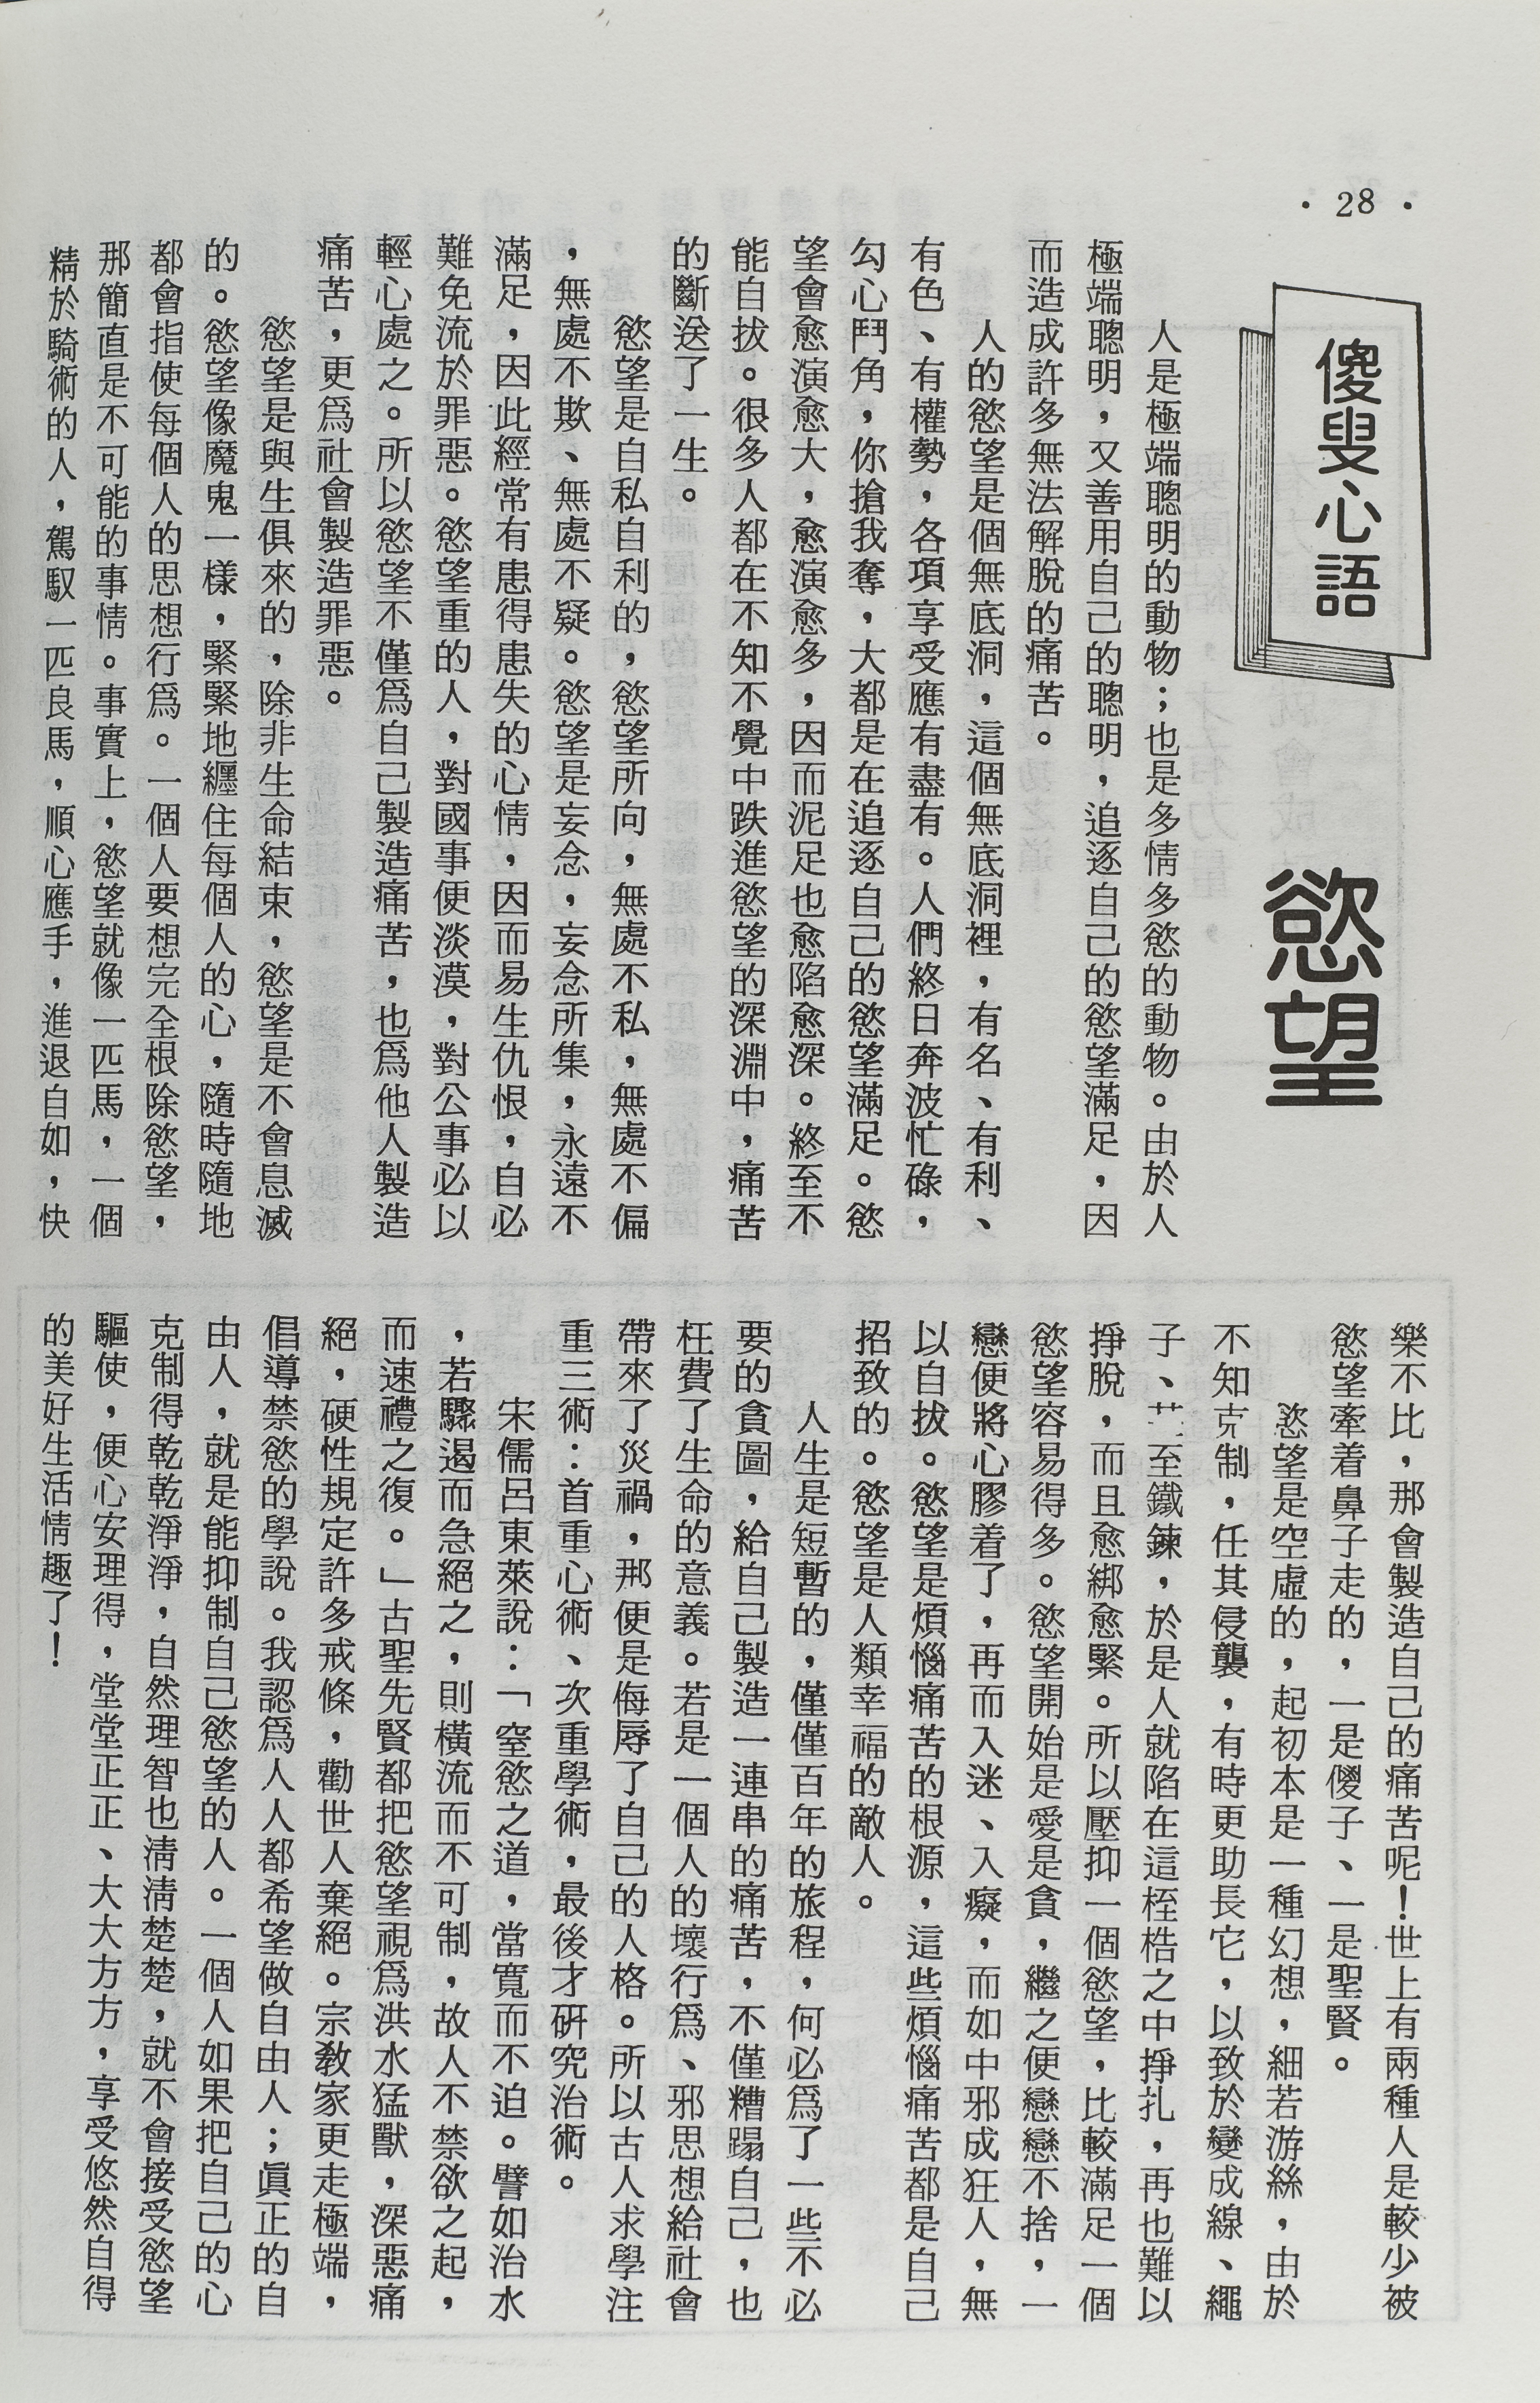 ・28・
傻叟心語
慾望
人是極端聰明的動物；也是多情多慾的動物。由於人
極端聰明，又善用自己的聰明，追逐自己的慾望滿足，因
而造成許多無法解脫的痛苦。
人的慾望是個無底洞，這個無底洞裡，有名、有利、
有色、有權勢，各項享受應有盡有。人們終日奔波忙碌，
勾心鬥角，你搶我奪，大都是在追逐自己的慾望滿足。慾
望會愈演愈大，愈演愈多，因而泥足也愈陷愈深。終至不
能自拔。很多人都在不知不覺中跌進慾望的深淵中，痛苦
的斷送了一生。
慾望是自私自利的，慾望所向，無處不私，無處不偏
，無處不欺、無處不疑。慾望是妄念，妄念所集，永遠不
滿足，因此經常有患得患失的心情，因而易生仇恨，自必
難免流於罪惡。慾望重的人，對國事便淡漠，對公事必以
輕心處之。所以慾望不僅爲自己製造痛苦，也爲他人製造
痛苦，更爲社會製造罪惡。
慾望是與生俱來的，除非生命結束，慾望是不會息滅
的。慾望像魔鬼一樣，緊緊地纏住每個人的心，隨時隨地
都會指使每個人的思想行爲。一個人要想完全根除慾望，
那簡直是不可能的事情。事實上，慾望就像一匹馬，一個
精於騎術的人，駕馭一匹良馬，順心應手，進退自如，快
樂不比，那會製造自己的痛苦呢！世上有兩種人是較少被
慾望牽着鼻子走的，一是傻子、一是聖賢。
慾望是空虛的，起初本是一種幻想，細若游絲，由於
不知克制，任其侵襲，有時更助長它，以致於變成線、繩
子、至鐵鍊，於是人就陷在這桎梏之中掙扎，再也難以
掙脫，而且愈綁愈緊。所以壓抑一個慾望，比較滿足一個
慾望容易得多。慾望開始是愛是貪，繼之便戀戀不捨，一
戀便將心膠着了，再而入迷、入癡，而如中邪成狂人，無
以自拔。慾望是煩惱痛苦的根源，這些煩惱痛苦都是自己
招致的。慾望是人類幸福的敵人。
人生是短暫的，僅僅百年的旅程，何必爲了一些不必
要的貪圖，給自己製造一連串的痛苦，不僅糟蹋自己，也
枉費了生命的意義。若是一個人的壞行爲、邪思想給社會
帶來了災禍，那便是侮辱了自己的人格。所以古人求學注
重三術：首重心術、次重學術，最後才硏究治術。
宋儒呂東萊說：「窒慾之道，當寬而不迫。譬如治水
，若驟遏而急絕之，則橫流而不可制，故人不禁欲之起，
而速禮之復。」古聖先賢都把慾望視爲洪水猛獸，深惡痛
絕，硬性規定許多戒條，勸世人棄絕。宗敎家更走極端，
倡導禁慾的學說。我認爲人人都希望做自由人；眞正的自
由人，就是能抑制自己慾望的人。一個人如果把自己的心
克制得乾乾淨淨，自然理智也淸淸楚楚，就不會接受慾望
驅使，便心安理得，堂堂正正、大大方方，享受悠然自得
的美好生活情趣了！